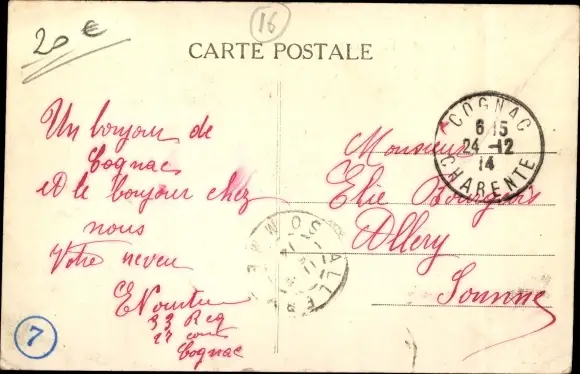 16
20 €
CARTE POSTALE
COGNAC
6 15
24 -12
14
CHARENTE
Un bonjour de
Cognac
et le bonjour chez
nous
Votre neveu
33 Reg
27 
Cognac
Monsieur
Elie Bourgeois
Allery
Somme
ALLERY
7